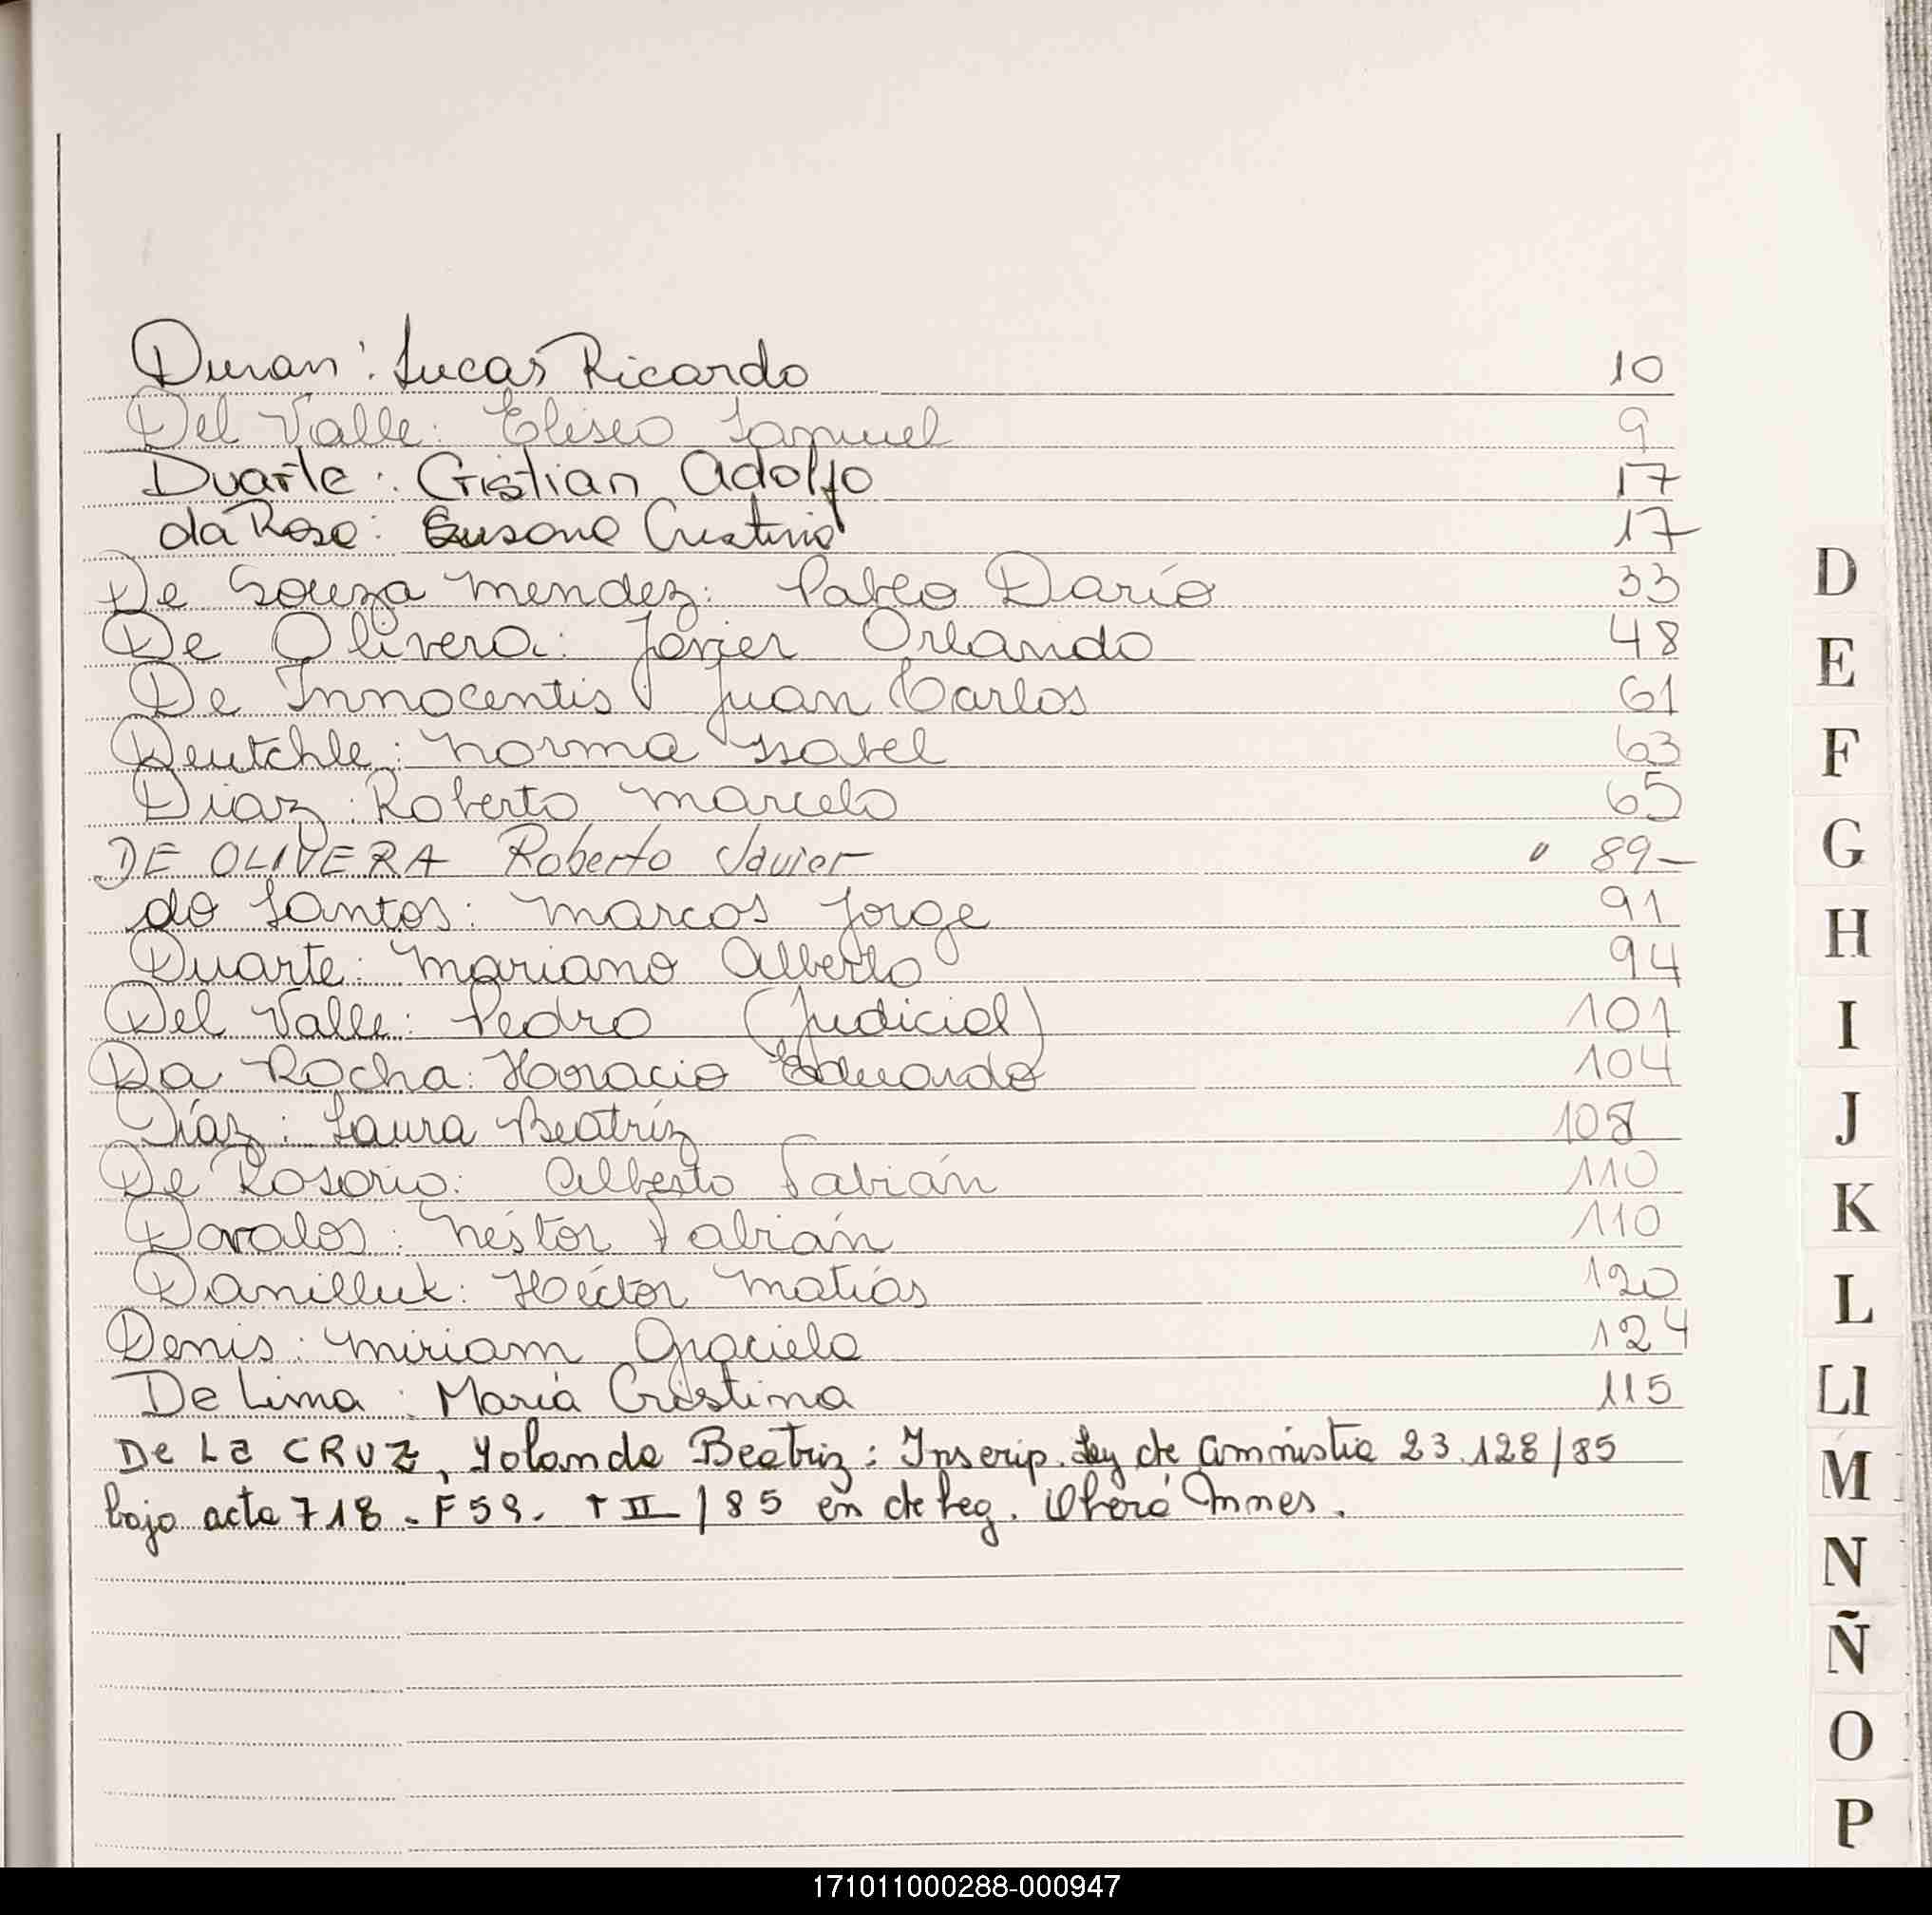 Duran: Lucas Ricardo 10
Del Valle: Eliseo Samuel 9
Duarte: Cristian Adolfo 17
da Rosa: Susana Cristina 17
De Souza Mendez: Pablo Darío 33
De Olivera: Javier Orlando 48
De Innocentis: Juan Carlos 61
Deutchle: Norma Isabel 63
Diaz: Roberto Marcelo 65
DE OLIVERA Roberto Javier " 89-
do Santos: Marcos Jorge 91
Duarte: Mariano Alberto 94
Del Valle: Pedro (Judicial) 101
Da Rocha: Horacio Eduardo 104
Díaz: Laura Beatríz 108
De Rosario: Alberto Fabián 110
Davalos: Néstor Fabián 110
Danilluk: Héctor Matías 120
Denis: Miriam Graciela 124
De Lima: María Cristina 115
De La CRUZ, Yolanda Beatriz: Inscrip. Ley de Amnistia 23.128/85
bajo acta 718 - F59. T II /85 en de leg. Oberá Mnes.
D
E
F
G
H
I
J
K
L
Ll
M
N
Ñ
O
P
171011000288-000947